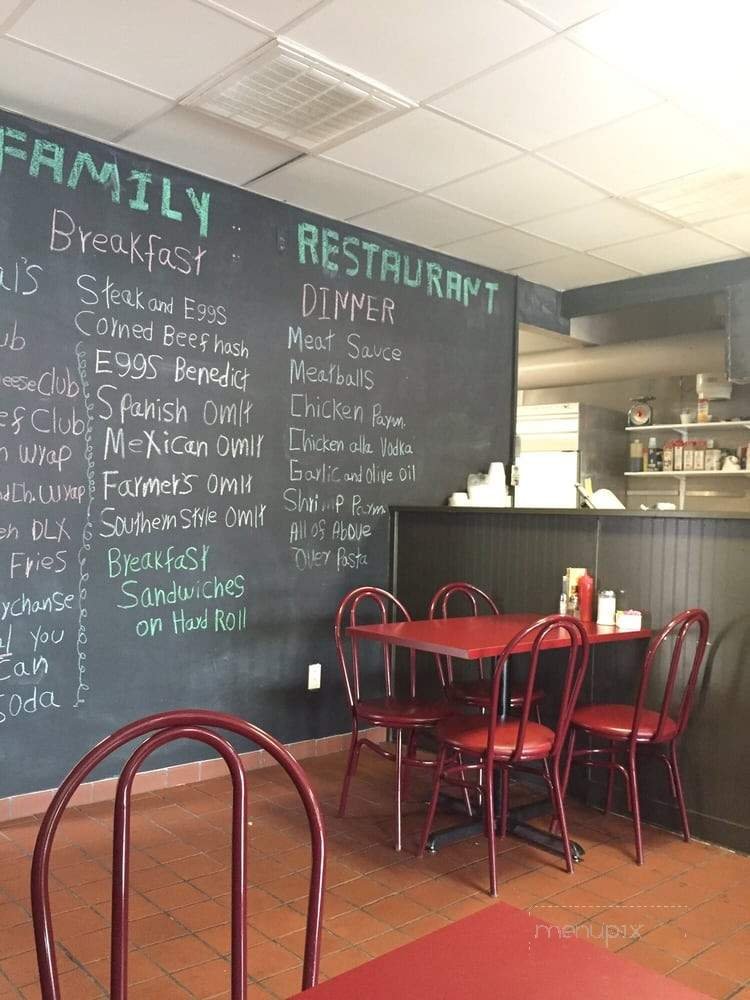 FAMILY
RESTAURANT
Club
Wrap
Wrap
DLX
Fries
You
Can
Soda
Breakfast
Steak and Eggs
Corned Beef hash
Eggs Benedict
Spanish omlt
Mexican omlt
Farmer's omlt
Southern Style omlt
Breakfast
Sandwiches
on Hard Roll
DINNER
Meat Sauce
Meatballs
Chicken Parm.
Chicken alla Vodka
Garlic and Olive oil
Shrimp Parm.
All of Above
Over Pasta
menupix